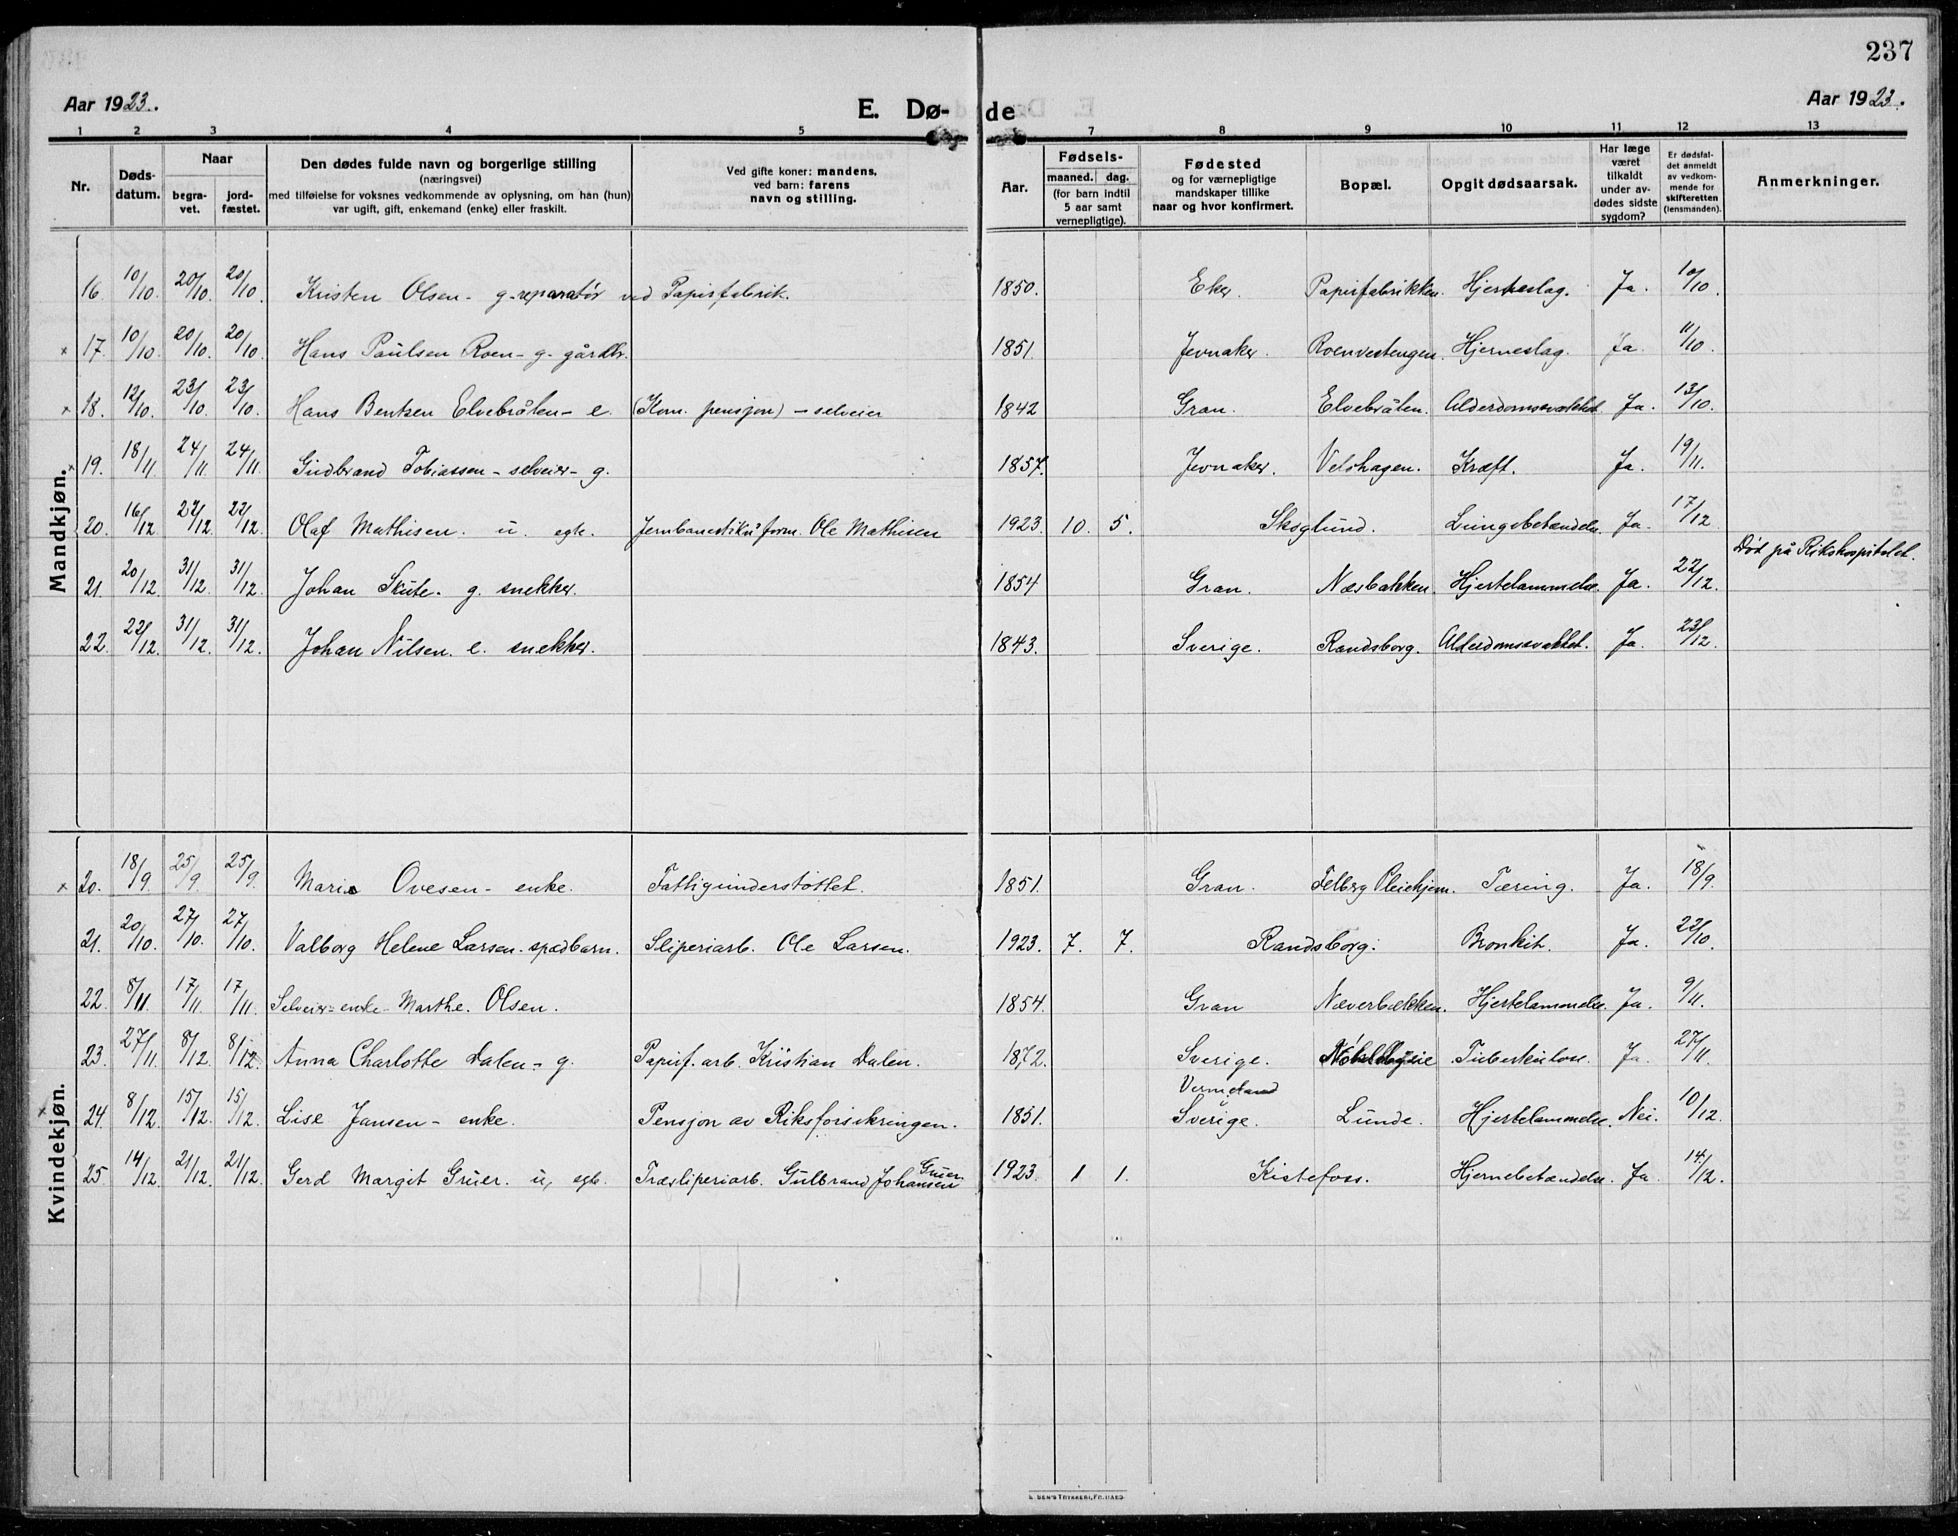 237
Aar 1923.
E. Dø-de
Aar 1923.
1 2 3 4 5 7 8 9 10 11 12 13
Nr.
Døds-datum.
Naar
begra-vet.
jord-fæstet.
Den dødes fulde navn og borgerlige stilling
(næringsvei)
med tilføielse for voksnes vedkommende av oplysning, om han (hun)
var ugift, gift, enkemand (enke) eller fraskilt.
Ved gifte koner: mandens,
ved barn: farens
navn og stilling.
Aar.
Fødsels-
maaned. dag.
(for barn indtil
5 aar samt
vernepligtige).
Fødested
og for værnepligtige
mandskaper tillike
naar og hvor konfirmert.
Bopæl.
Opgit dødsaarsak.
Har læge
været
tilkaldt
under av-
dødes sidste
sygdom?
Er dødsfal-
det anmeldt
av vedkom-
mende for
skifteretten
(lensmanden).
Anmerkninger.
Mandkjøn.
16. 10/10. 20/10. 20/10. Kristen Olsen - g - reparatør ved Papirfabrik. 1850. Eker. Papirfabrikken. Hjerneslag. Ja. 10/10.
x 17. 10/10. 20/10. 20/10. Hans Paulsen Roen - g. gårdbr. 1851. Jevnaker. Roenvestengen. Hjerneslag. Ja. 11/10.
x 18. 12/10. 23/10. 23/10. Hans Bentsen Elvebråten - e. (Kom. pensjon) - selveier 1842 Gran. Elvebråten. Alderdomssvakhet Ja. 13/10.
x 19. 18/11 24/11. 24/11 Gudbrand Tobiassen - selveier - g. 1857. Jevnaker. Velshagen. Kræft. Ja. 19/11.
20. 16/12 22/12. 22/12. Olaf Mathisen. u. egte. Jernbanestiku form. Ole Mathisen 1923 10. 5. Skoglund. Lungebetændelse. Ja. 17/12
Død på Rikshospitalet.
21. 20/12. 31/12. 31/12. Johan Skute. g. snekker. 1854 Gran. Næsbakken. Hjertelammelse. Ja. 22/12.
22. 22/12. 31/12. 31/12. Johan Nilsen. e. snekker. 1843. Sverige. Randsborg. Alderdomssvakhet. Ja. 23/12.
Kvindekjøn.
x 20. 18/9. 25/9. 25/9. Marie Ovesen - enke. Fattigunderstøttet. 1851. Gran. Felberg Pleiehjem. Tæring. Ja. 18/9.
21. 20/10. 27/10. 27/10. Valborg Helene Larsen - spædbarn. Sliperiarb. Ole Larsen. 1923. 7. 7. Randsborg. Bronkit. Ja. 22/10.
22. 8/11. 17/11. 17/11. Selveier-enke - Marthe Olsen. 1854. Gran Næverbækken. Hjertelammelse. Ja. 9/11.
23. 27/11. 8/12. 8/12. Anna Charlotte Dalen - g. Papirf. arb. Kristian Dalen. 1872. Sverige. Tuberkulose. Ja. 27/11.
Vermeland
x 24. 8/12. 15/12. 15/12. Lise Jansen - enke. Pensjon av Riksforsikringen. 1851. Sverige. Lunde. Hjertelammelse. Nei. 10/12.
Gruer
25. 14/12. 21/12. 21/12. Gerd Margit Gruer. u, egte. Træsliperiarb. Gulbrand Johansen 1923. 1 1. Kistefoss. Hjernebetændelse. Ja. 14/12.